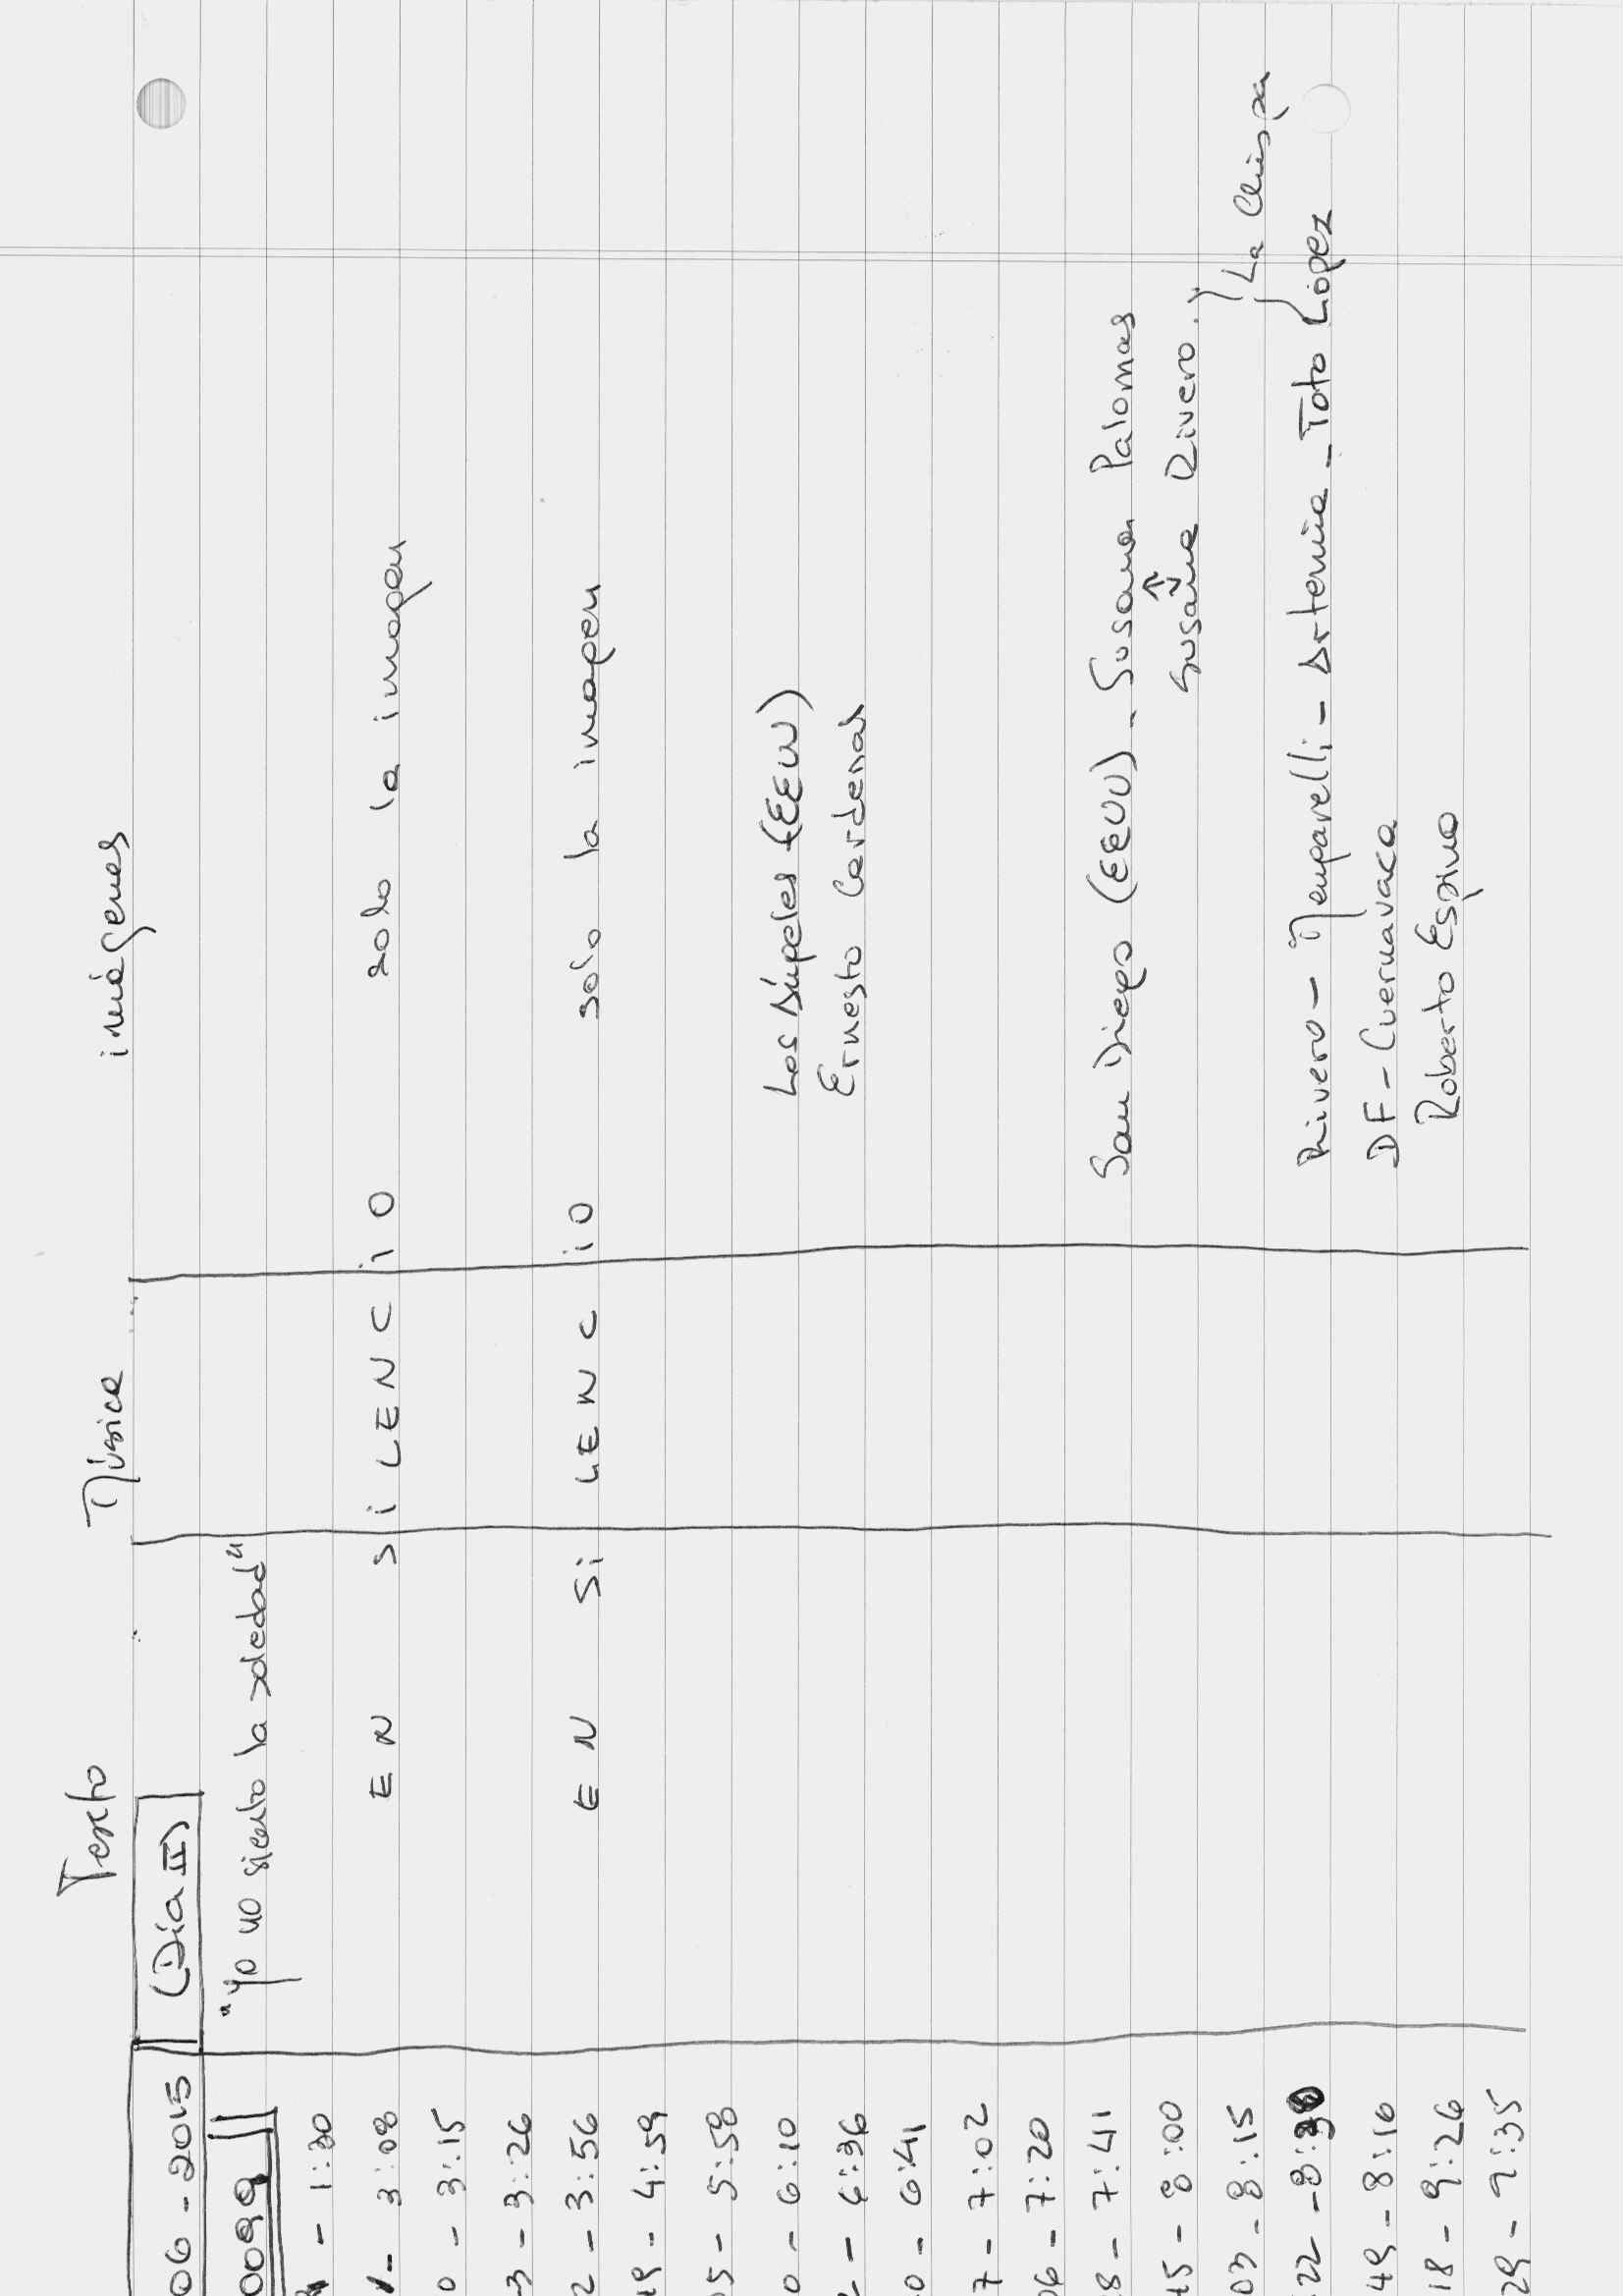 Texto Música imágenes
06-2015 (Día II)
0099 "Yo no siento la soledad"
- 1:30
- 3:08 EN SiLENCiO solo la imagen
0 - 3:15
3 - 3:26
2 - 3:56 EN SiLENCiO solo la imagen
49 - 4:59
05 - 5:58
0 - 6:10 Los Ángeles (EEUU)
- 6:36 Ernesto Cardenas
0 - 6:41
7 - 7:02
06 - 7:20
8 - 7:41 San Diego (EEUU) - Susana Palomas
45 - 8:00 Susana Rivero.
03 - 8:15 La Chispa
22 - Rivero - Manparelli - Artemia - Toto López
49 - 8:10 DF - Cuernavaca
18 - 9:26 Roberto Espino
29 - 9:35